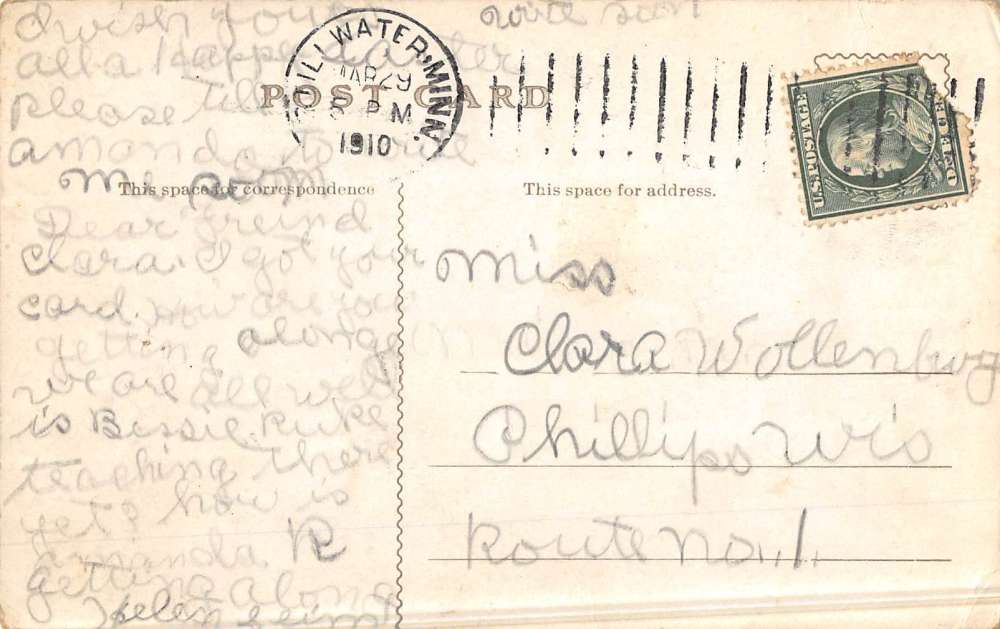 I wish you
write soon
all a Happy Easter
please tell
amanda to write
me soon
STILLWATER, MINN.
MAR 29
PM
1910
POST CARD
U.S. POSTAGE
This space for correspondence
This space for address.
Dear Freind
Clara. I got your
card. how are you
getting alonge
we are all well
is Bessie
teaching there
yet? how is
amanda R
getting along
Helen
Miss
Clara Wollenburg
Phillips Wis
Route no. 1.